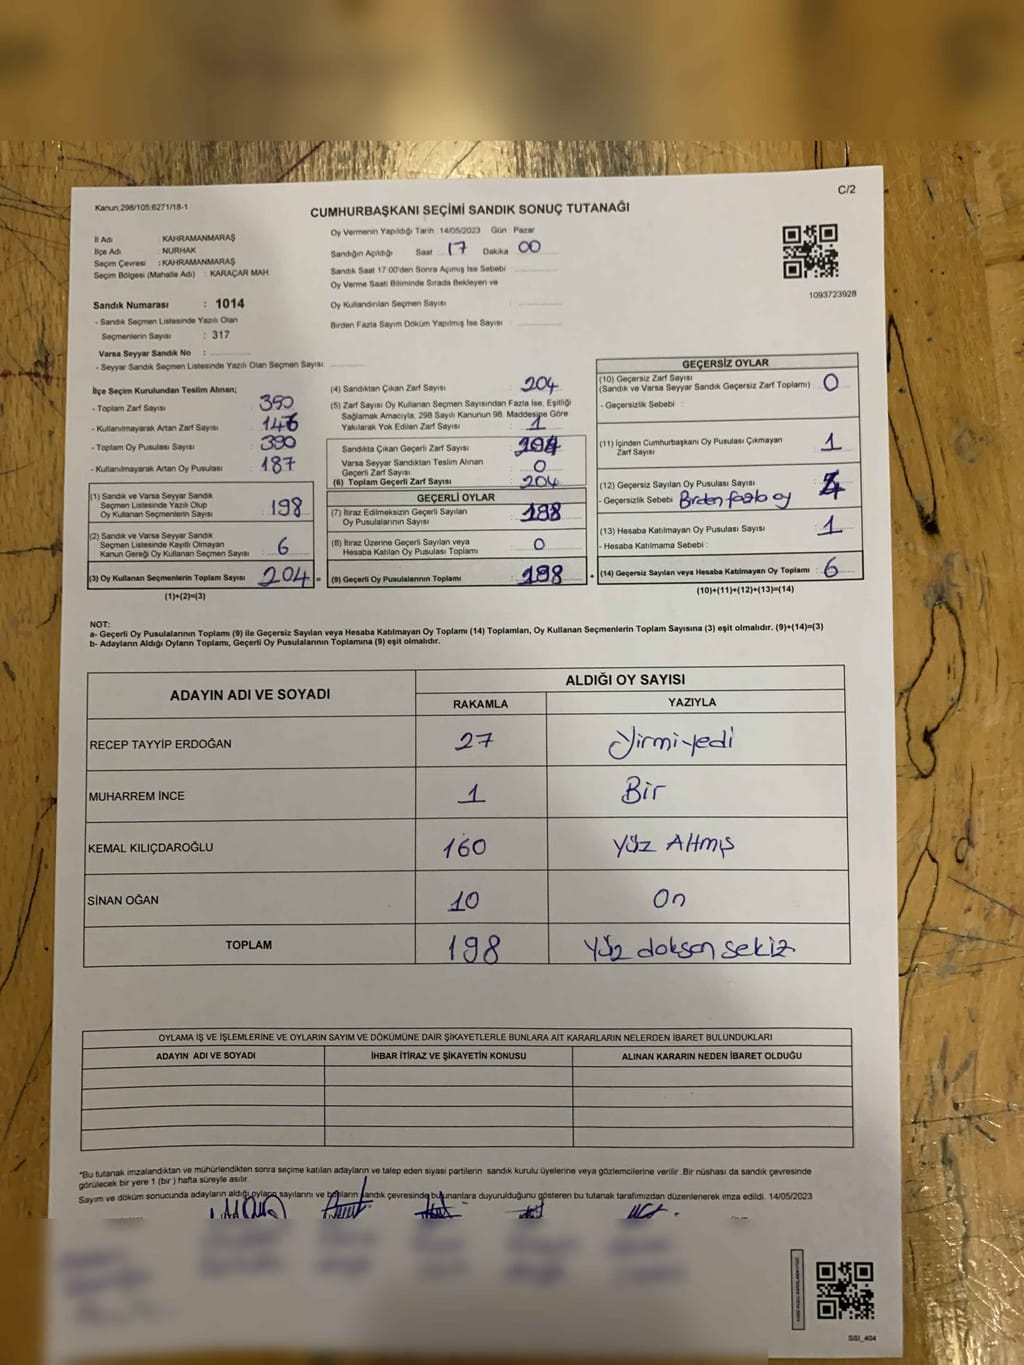 C/2
Kanun:298/105;6271/18-1
CUMHURBAŞKANI SEÇİMİ SANDIK SONUÇ TUTANAĞI
İl Adı : KAHRAMANMARAŞ
İlçe Adı : NURHAK
Seçim Çevresi : KAHRAMANMARAŞ
Seçim Bölgesi (Mahalle Adı) : KARAÇAR MAH.
Sandık Numarası : 1014
- Sandık Seçmen Listesinde Yazılı Olan
Seçmenlerin Sayısı : 317
Varsa Seyyar Sandık No :
- Seyyar Sandık Seçmen Listesinde Yazılı Olan Seçmen Sayısı:
Oy Vermenin Yapıldığı Tarih :14/05/2023 Gün Pazar
Sandığın Açıldığı Saat 17 Dakika 00
Sandık Saat 17:00'den Sonra Açımış İse Sebebi
Oy Verme Saati Bitiminde Sırada Bekleyen ve
Oy Kullandırılan Seçmen Sayısı :
Birden Fazla Sayım Döküm Yapılmış İse Sayısı :
1093723928
İlçe Seçim Kurulundan Teslim Alınan;
- Toplam Zarf Sayısı 350
- Kullanılmayarak Artan Zarf Sayısı 146
- Toplam Oy Pusulası Sayısı
- Kullanılmayarak Artan Oy Pusulası 187
(1) Sandık ve Varsa Seyyar Sandık
Seçmen Listesinde Yazılı Olup
Oy Kullanan Seçmenlerin Sayısı 198
(2) Sandık ve Varsa Seyyar Sandık
Seçmen Listesinde Kayıtlı Olmayan
Kanun Gereği Oy Kullanan Seçmen Sayısı 6
(3) Oy Kullanan Seçmenlerin Toplam Sayısı 204 =
(1)+(2)=(3)
(4) Sandıktan Çıkan Zarf Sayısı : 204
(5) Zarf Sayısı Oy Kullanan Seçmen Sayısından Fazla İse, Eşitliği
Sağlamak Amacıyla, 298 Sayılı Kanunun 98. Maddesine Göre
Yakılarak Yok Edilen Zarf Sayısı : 1
Sandıkta Çıkan Geçerli Zarf Sayısı : 204
Varsa Seyyar Sandıktan Teslim Alınan
Geçerli Zarf Sayısı : 0
(6) Toplam Geçerli Zarf Sayısı : 204
GEÇERLİ OYLAR
(7) İtiraz Edilmeksizin Geçerli Sayılan
Oy Pusulalarının Sayısı : 198
(8) İtiraz Üzerine Geçerli Sayılan veya
Hesaba Katılan Oy Pusulası Toplamı : 0
(9) Geçerli Oy Pusulalarının Toplamı : 198 +
GEÇERSİZ OYLAR
(10) Geçersiz Zarf Sayısı
(Sandık ve Varsa Seyyar Sandık Geçersiz Zarf Toplamı) : 0
- Geçersizlik Sebebi :
(11) İçinden Cumhurbaşkanı Oy Pusulası Çıkmayan
Zarf Sayısı : 1
(12) Geçersiz Sayılan Oy Pusulası Sayısı : 4
- Geçersizlik Sebebi Birden fazla oy
(13) Hesaba Katılmayan Oy Pusulası Sayısı : 1
- Hesaba Katılmama Sebebi :
(14) Geçersiz Sayılan veya Hesaba Katılmayan Oy Toplamı : 6
(10)+(11)+(12)+(13)=(14)
NOT:
a- Geçerli Oy Pusulalarının Toplamı (9) ile Geçersiz Sayılan veya Hesaba Katılmayan Oy Toplamı (14) Toplamları, Oy Kullanan Seçmenlerin Toplam Sayısına (3) eşit olmalıdır. (9)+(14)=(3)
b- Adayların Aldığı Oyların Toplamı, Geçerli Oy Pusulalarının Toplamına (9) eşit olmalıdır.
ADAYIN ADI VE SOYADI
ALDIĞI OY SAYISI
RAKAMLA YAZIYLA
RECEP TAYYİP ERDOĞAN 27 Yirmi yedi
MUHARREM İNCE 1 Bir
KEMAL KILIÇDAROĞLU 160 Yüz Altmış
SİNAN OĞAN 10 On
TOPLAM 198 Yüz doksan sekiz
OYLAMA İŞ VE İŞLEMLERİNE VE OYLARIN SAYIM VE DÖKÜMÜNE DAİR ŞİKAYETLERLE BUNLARA AİT KARARLARIN NELERDEN İBARET BULUNDUKLARI
ADAYIN ADI VE SOYADI İHBAR İTİRAZ VE ŞİKAYETİN KONUSU ALINAN KARARIN NEDEN İBARET OLDUĞU
*Bu tutanak imzalandıktan ve mühürlendikten sonra seçime katılan adayların ve talep eden siyasi partilerin sandık kurulu üyelerine veya gözlemcilerine verilir. Bir nüshası da sandık çevresinde
görülecek bir yere 1 (bir) hafta süreyle asılır.
Sayım ve döküm sonucunda adayların aldığı oyların sayılarını ve bunların sandık çevresinde bulunanlara duyurulduğunu gösteren bu tutanak tarafımızdan düzenlenerek imza edildi. 14/05/2023
SSI_404